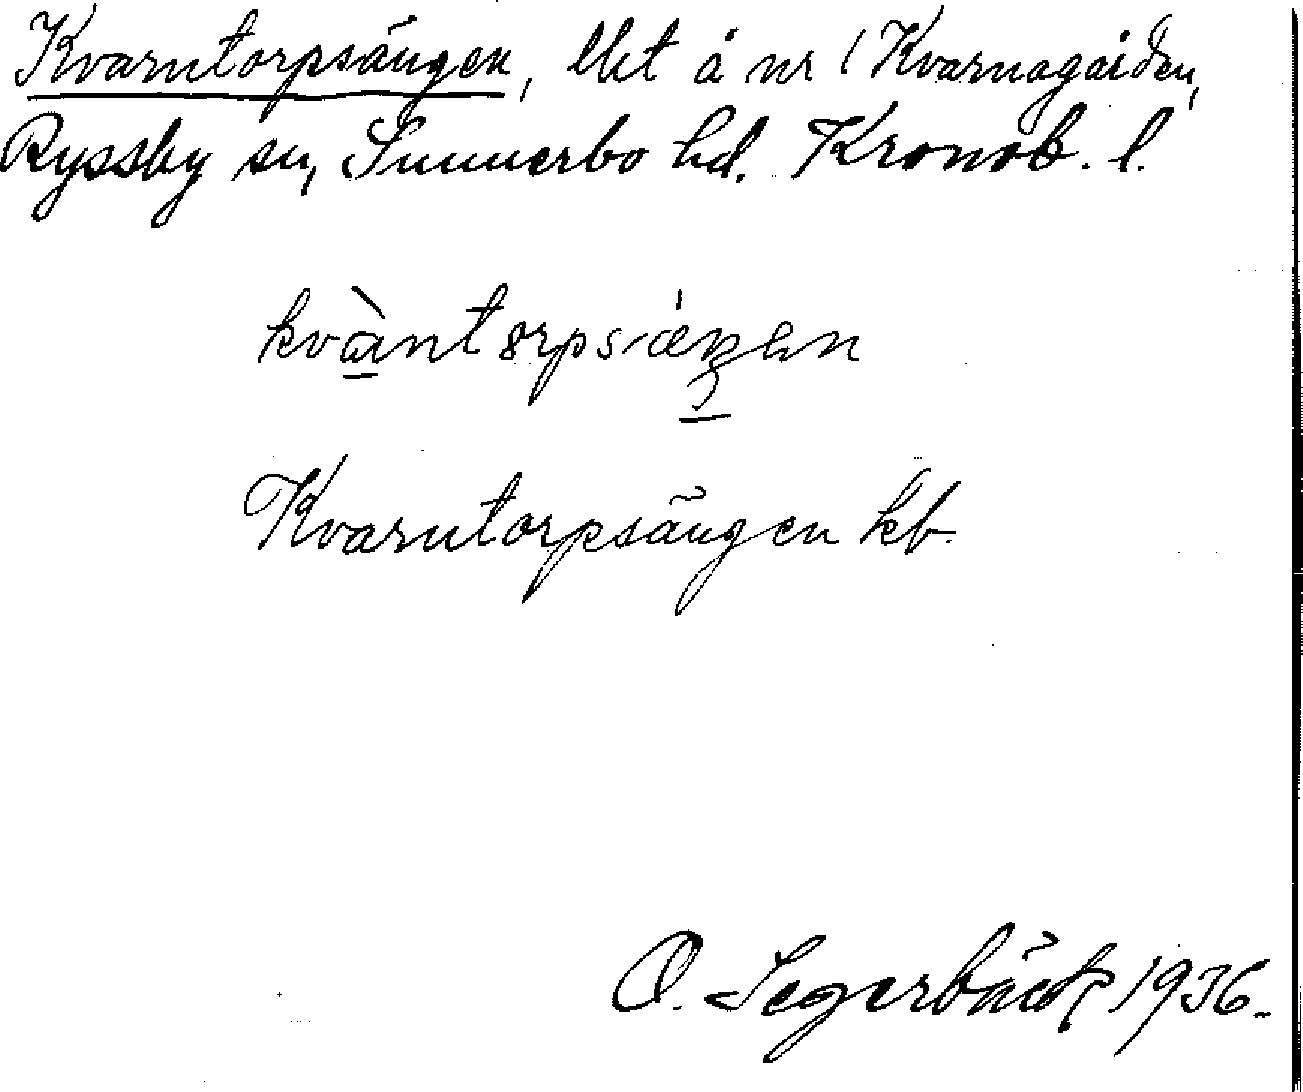 Kvarntorpsängen, lht å nr 1 Kvarnagården,
Ryssby sn, Sunnerbo hd. Kronob. l.
Kvarntorpsängen kb.
O. Segerbäck 1936.